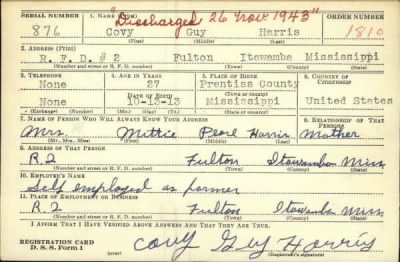 "Discharged 26 Nov 1943"
SERIAL NUMBER 1. NAME (Print) ORDER NUMBER
876 Covy Guy Harris 1810
(First) (Middle) (Last)
2. ADDRESS (Print)
R. F. D. # 2 Fulton Itewambe Mississippi
(Number and street or R. F. D. number) (Town) (County) (State)
3. TELEPHONE 4. AGE IN YEARS 5. PLACE OF BIRTH 6. COUNTRY OF CITIZENSHIP
None 27 Prentiss County
DATE OF BIRTH (Town or county)
None 10-13-13 Mississippi United States
(Exchange) (Number) (Mo.) (Day) (Yr.) (State or country)
7. NAME OF PERSON WHO WILL ALWAYS KNOW YOUR ADDRESS 8. RELATIONSHIP OF THAT PERSON
Mrs. Mittie Pearl Harris Mother
(Mr., Mrs., Miss) (First) (Middle) (Last)
9. ADDRESS OF THAT PERSON
R.2 Fulton Itawamba Miss
(Number and street or R. F. D. number) (Town) (County) (State)
10. EMPLOYER'S NAME
Self employed as farmer
11. PLACE OF EMPLOYMENT OR BUSINESS
R.2 Fulton Itawamba Miss
(Number and street or R. F. D. number) (Town) (County) (State)
I AFFIRM THAT I HAVE VERIFIED ABOVE ANSWERS AND THAT THEY ARE TRUE.
REGISTRATION CARD
D. S. S. Form 1
Covy Guy Harris